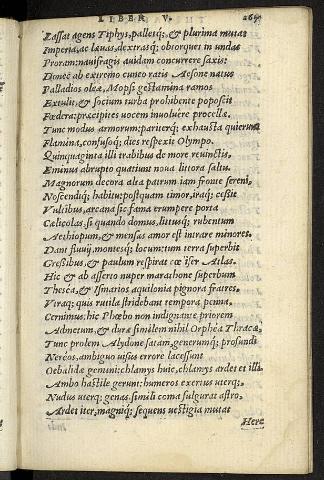 LIBER V.
Lassat agens Tiphys, palletq; & plurima mutat
Imperia, ac lævas, dextrasq; obtorquet in undas
Proram: naufragij auidam concurrere saxis:
Donec ab extremo cuneo ratis Aesone natus
Palladios oleæ, Mopsi gestamina ramos
Extulit, & socium turba prohibente poposcit
Fœdera: præcipites uocem inuoluere procellæ.
Tunc modus armorum: pariterq; exhausta quierunt
Flamina, confusoq; dies respexit Olympo.
Quinquaginta illi trabibus de more reuinctis,
Eminus abrupto quatiunt noua littora saltu.
Magnorum decora alta patrum iam fronte sereni,
Noscendiq; habitu: postquam timor, iraq; cessit
Vultibus, arcana sic fama erumpere porta
Cælicolas, si quando domus, littusq; rubentum
Aethiopum, & mensas amor est intrare minores.
Dant fluuij, montesq; locum: tum terra superbit
Gressibus, & paulum respirat cœlifer Atlas.
Hic & ab asserto nuper marathone superbum
Thesea, & Ismarios aquilonia pignora fratres.
Vtraq; quis rutila stridebant tempora penna,
Cernimus: hic Phœbo non indignante priorem
Admetum, & duræ similem nihil Orphea Thracæ,
Tunc prolem Alydone satam, generumq; profundi
Nereos, ambiguo uisus errore lacessunt
Oebalidæ gemini: chlamys huic, chlamys ardet et illi.
Ambo hastile gerunt: humeros exertus uterq;,
Nudus uterq; genas, simili coma fulgurat astro,
Ardet iter, magniq; sequens uestigia mutat
Herc